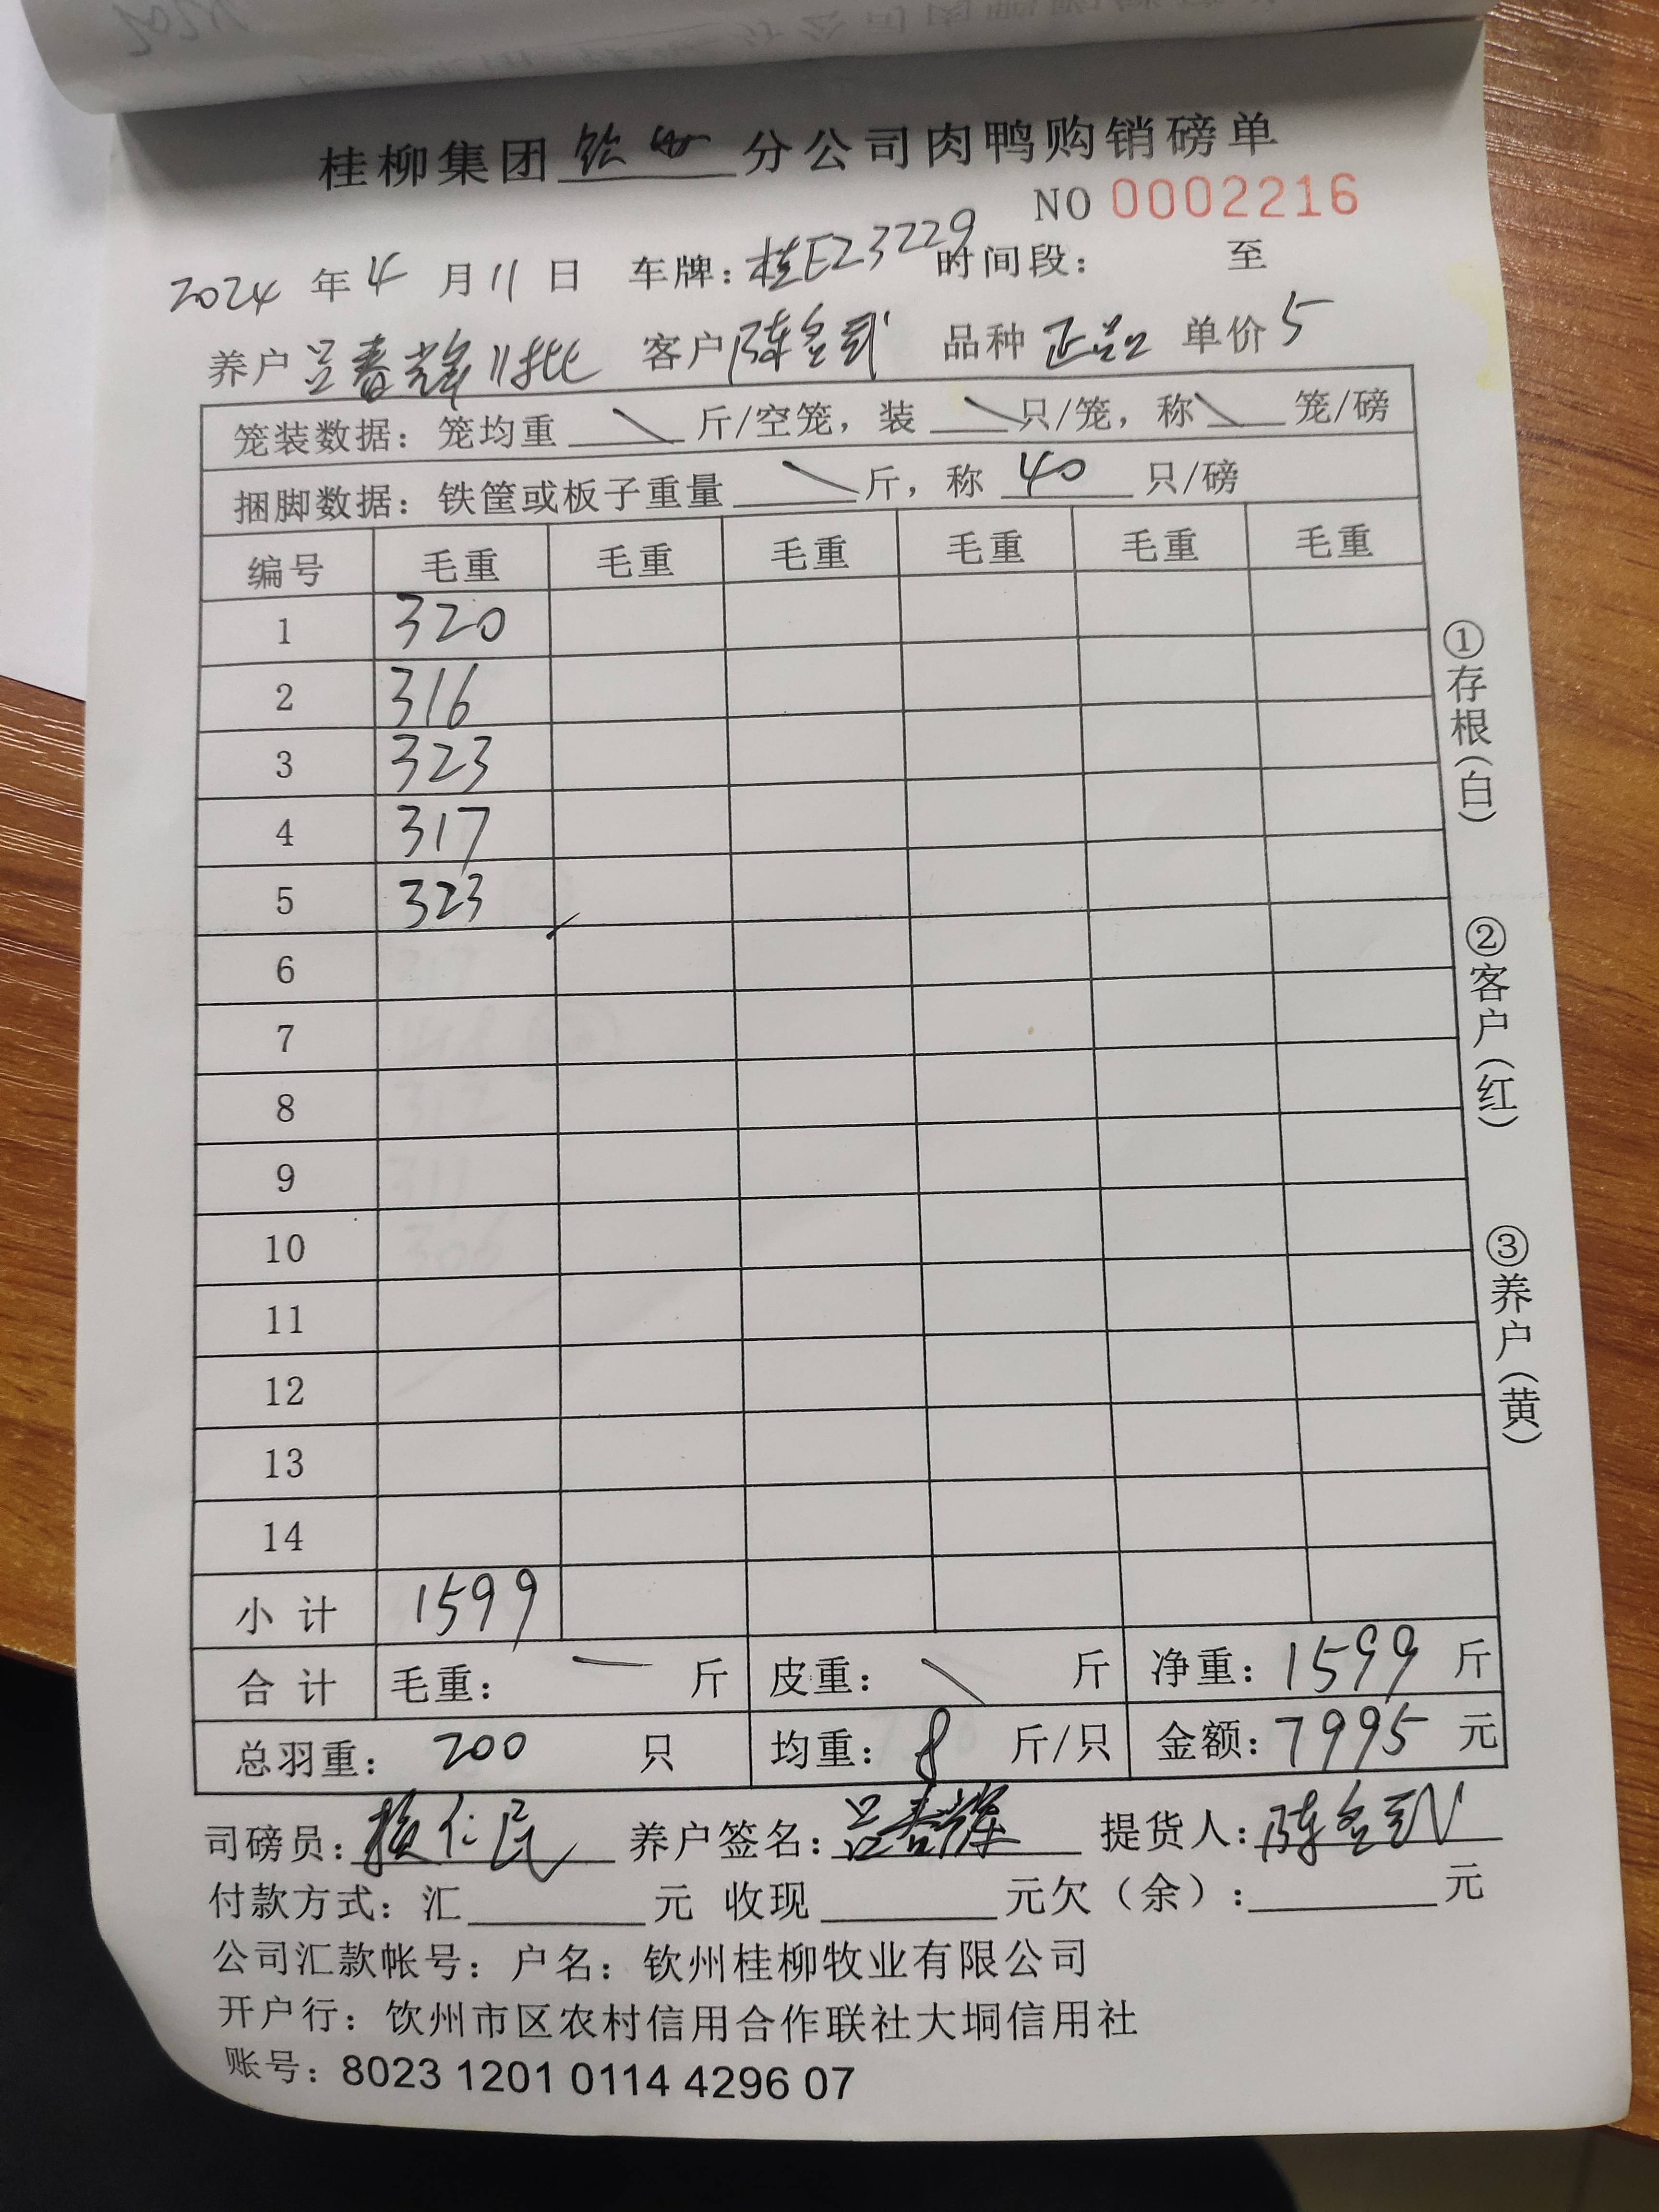 桂柳集团 钦州 分公司肉鸭购销磅单
NO 0002216
2024 年 4 月 11 日 车牌：桂E23229 时间段： 至
养户 吕春辉11批 客户 陈金武 品种 正品 单价 5
笼装数据：笼均重 \ 斤/空笼，装 \ 只/笼，称 \ 笼/磅
捆脚数据：铁筐或板子重量 \ 斤，称 40 只/磅
编号 毛重 毛重 毛重 毛重 毛重 毛重
1 320
2 316
3 323
4 317
5 323
6
7
8
9
10
11
12
13
14
小 计 1599
合 计 毛重： — 斤 皮重： \ 斤 净重：1599 斤
总羽重： 200 只 均重：8 斤/只 金额：7995 元
司磅员：仁民 养户签名：吕春辉 提货人：陈金武
付款方式：汇 元 收现 元欠（余）： 元
公司汇款帐号：户名：钦州桂柳牧业有限公司
开户行：饮州市区农村信用合作联社大垌信用社
账号：8023 1201 0114 4296 07
①存根（白）
②客户（红）
③养户（黄）